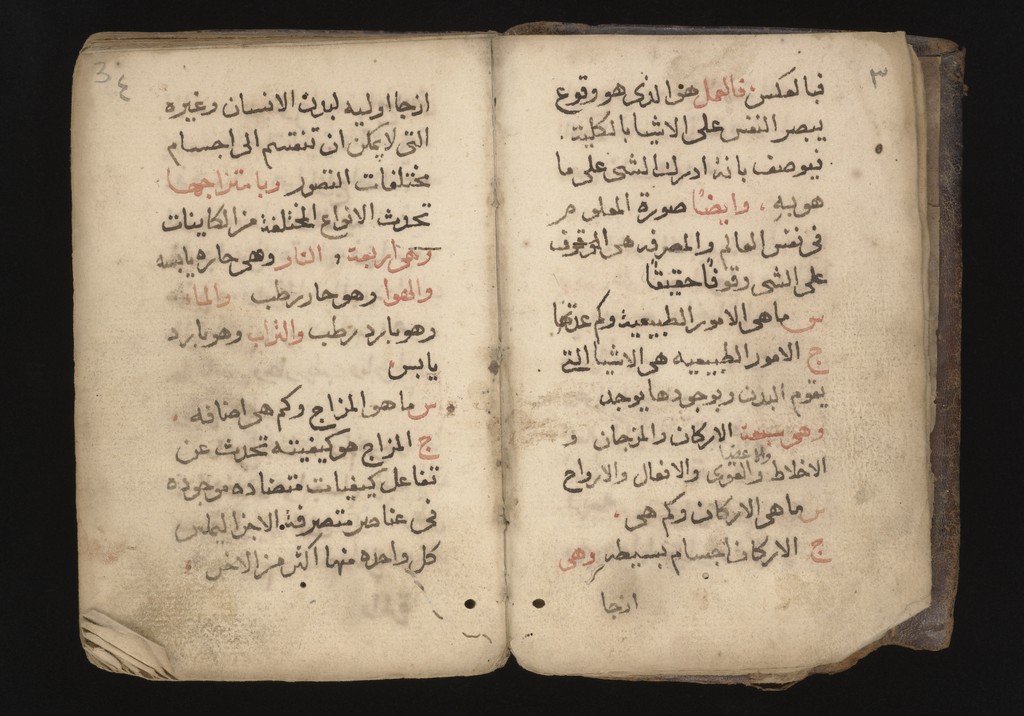 ٣
فبالعكس فالعمل هو الذى هو وقوع
يبصر النفس على الاشيا بالكلية.
فيوصف بانه ادرك الشى على ما
هو به ، وايضًا صورة المعلوم
فى نفس العالم والمصرفه هى الوقوف
على الشى وقوفًا حقيقًا
س ماهى الامور الطبيعية وكم عدتها
ج الامور الطبيعيه هى الاشيا التى
يقوم البدن وبوجودها يوجد
وهى سبعة الاركان والمزجان و
والاعضا
الاخلاط والقوى والافعال والارواح
س ماهى الاركان وكم هى .
ج الاركان اجسام بسيطه وهى
ازجا
3 ٤
ازجا اوليه لبدن الانسان وغيره
التى لا يمكن ان تنقسم الى اجسام
مختلفات التصور وبامتزاجها
تحدث الانواع المختلفة من الكاينات
وهى اربعة , النار وهى حاره يابسه
والهوا وهو حار رطب والما
وهو بارد رطب والتراب وهو بارد
يابس
س ما هو المزاج وكم هى اضافه .
ج المزاج هو كيفيته تحدث عن
تفاعل كيفيات متضاده موجوده
فى عناصر متصرفة الاجزا ليماس
كل واحده منها اكثر من الاخر .